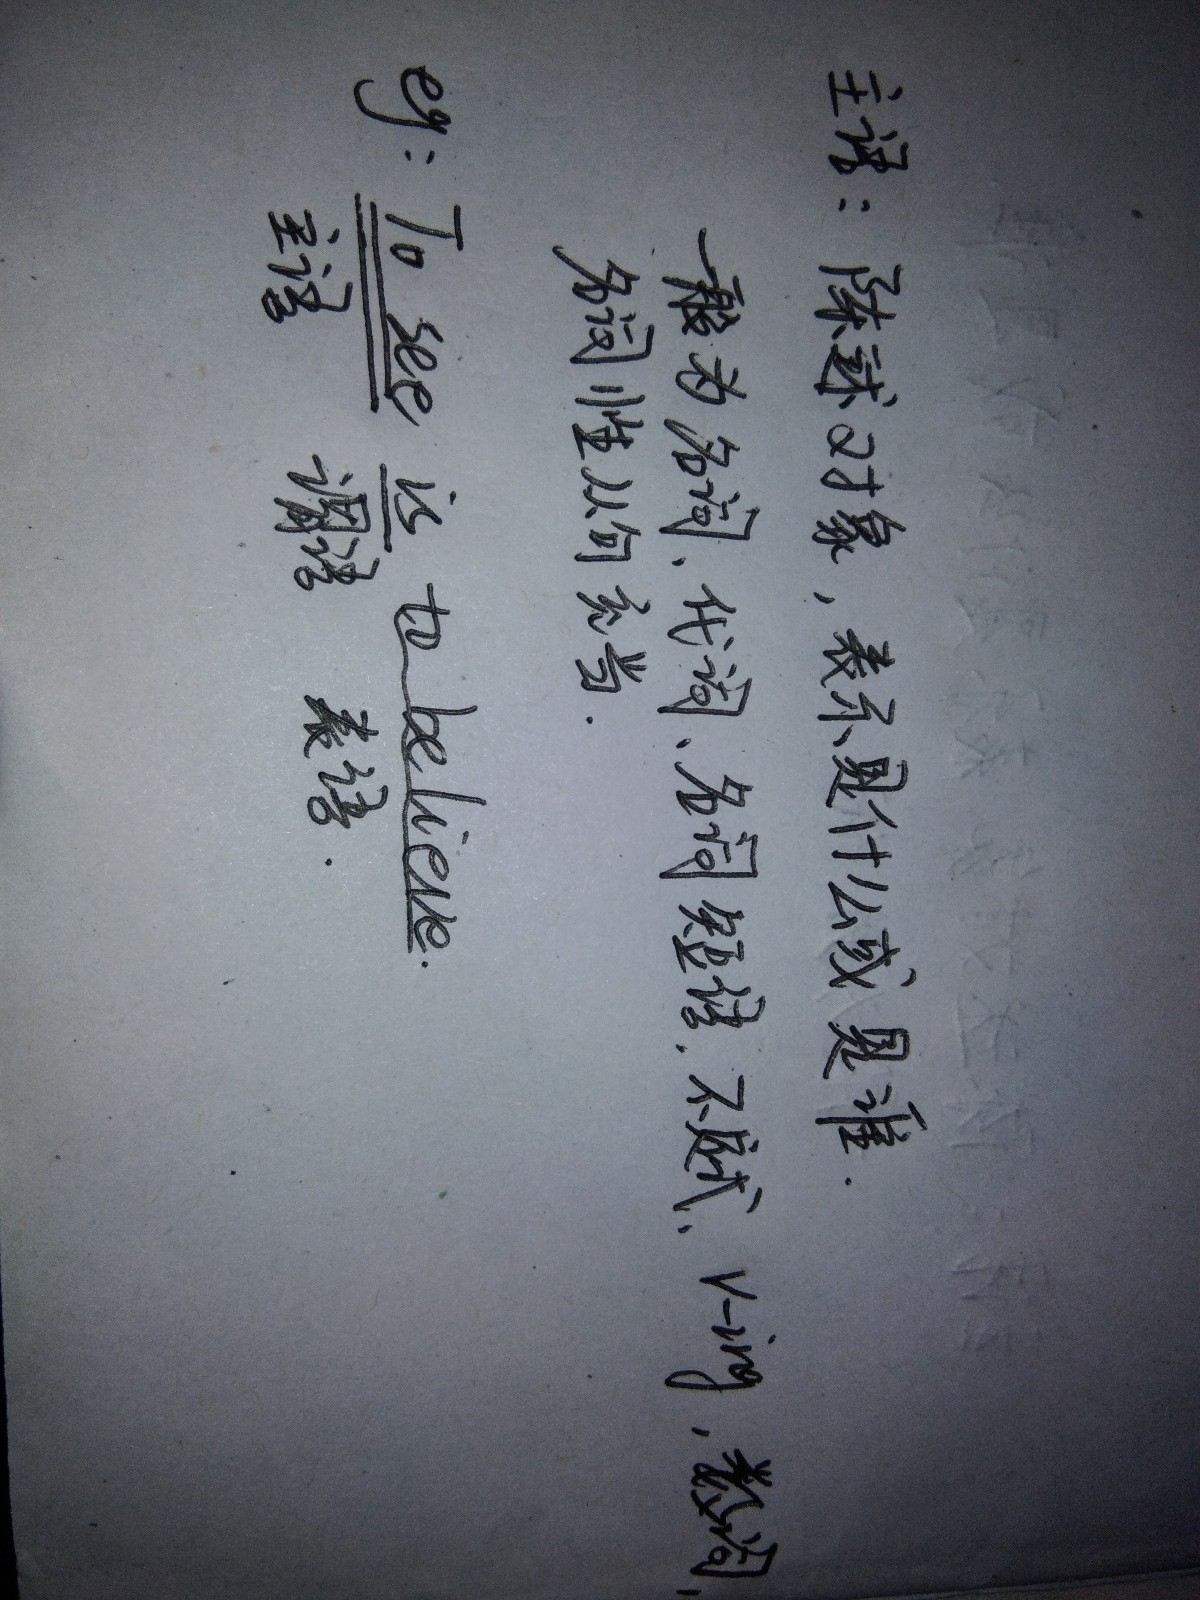 主语：陈述对象，表示是什么或是谁．
一般为名词、代词、名词短语．不定式、v-ing，数词，
名词性从句充当．
eg: To see is to believe.
主语 谓语 表语．